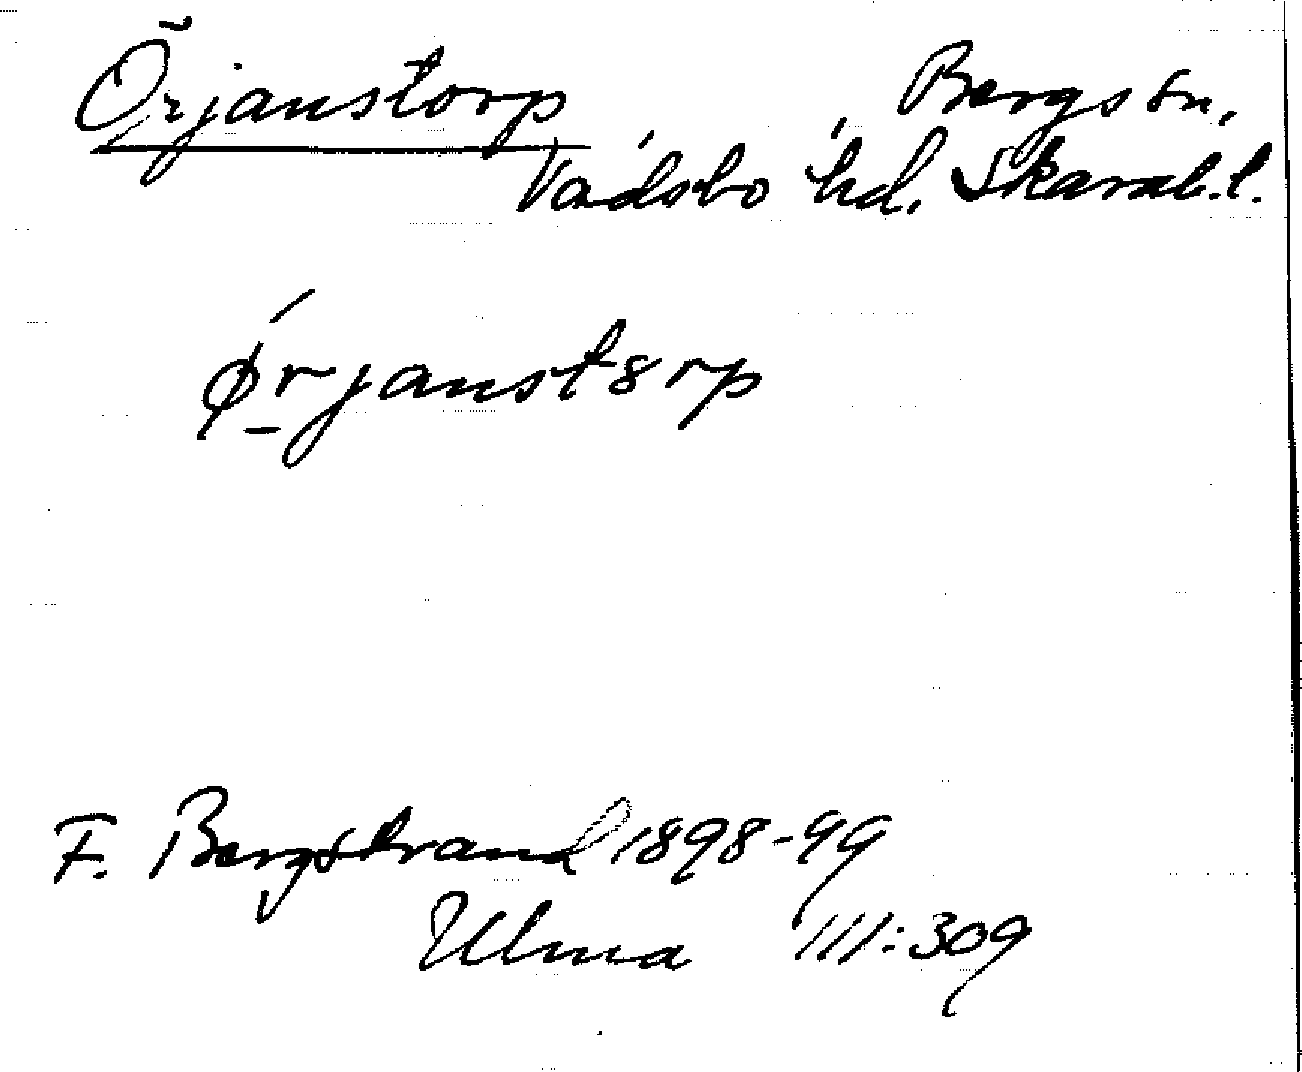 Örjanstorp Bergs sn,
Vadsbo hd. Skarab.l.
ǿrjanst8rp
F. Bergstrand 1898-99
Ulma 111:309